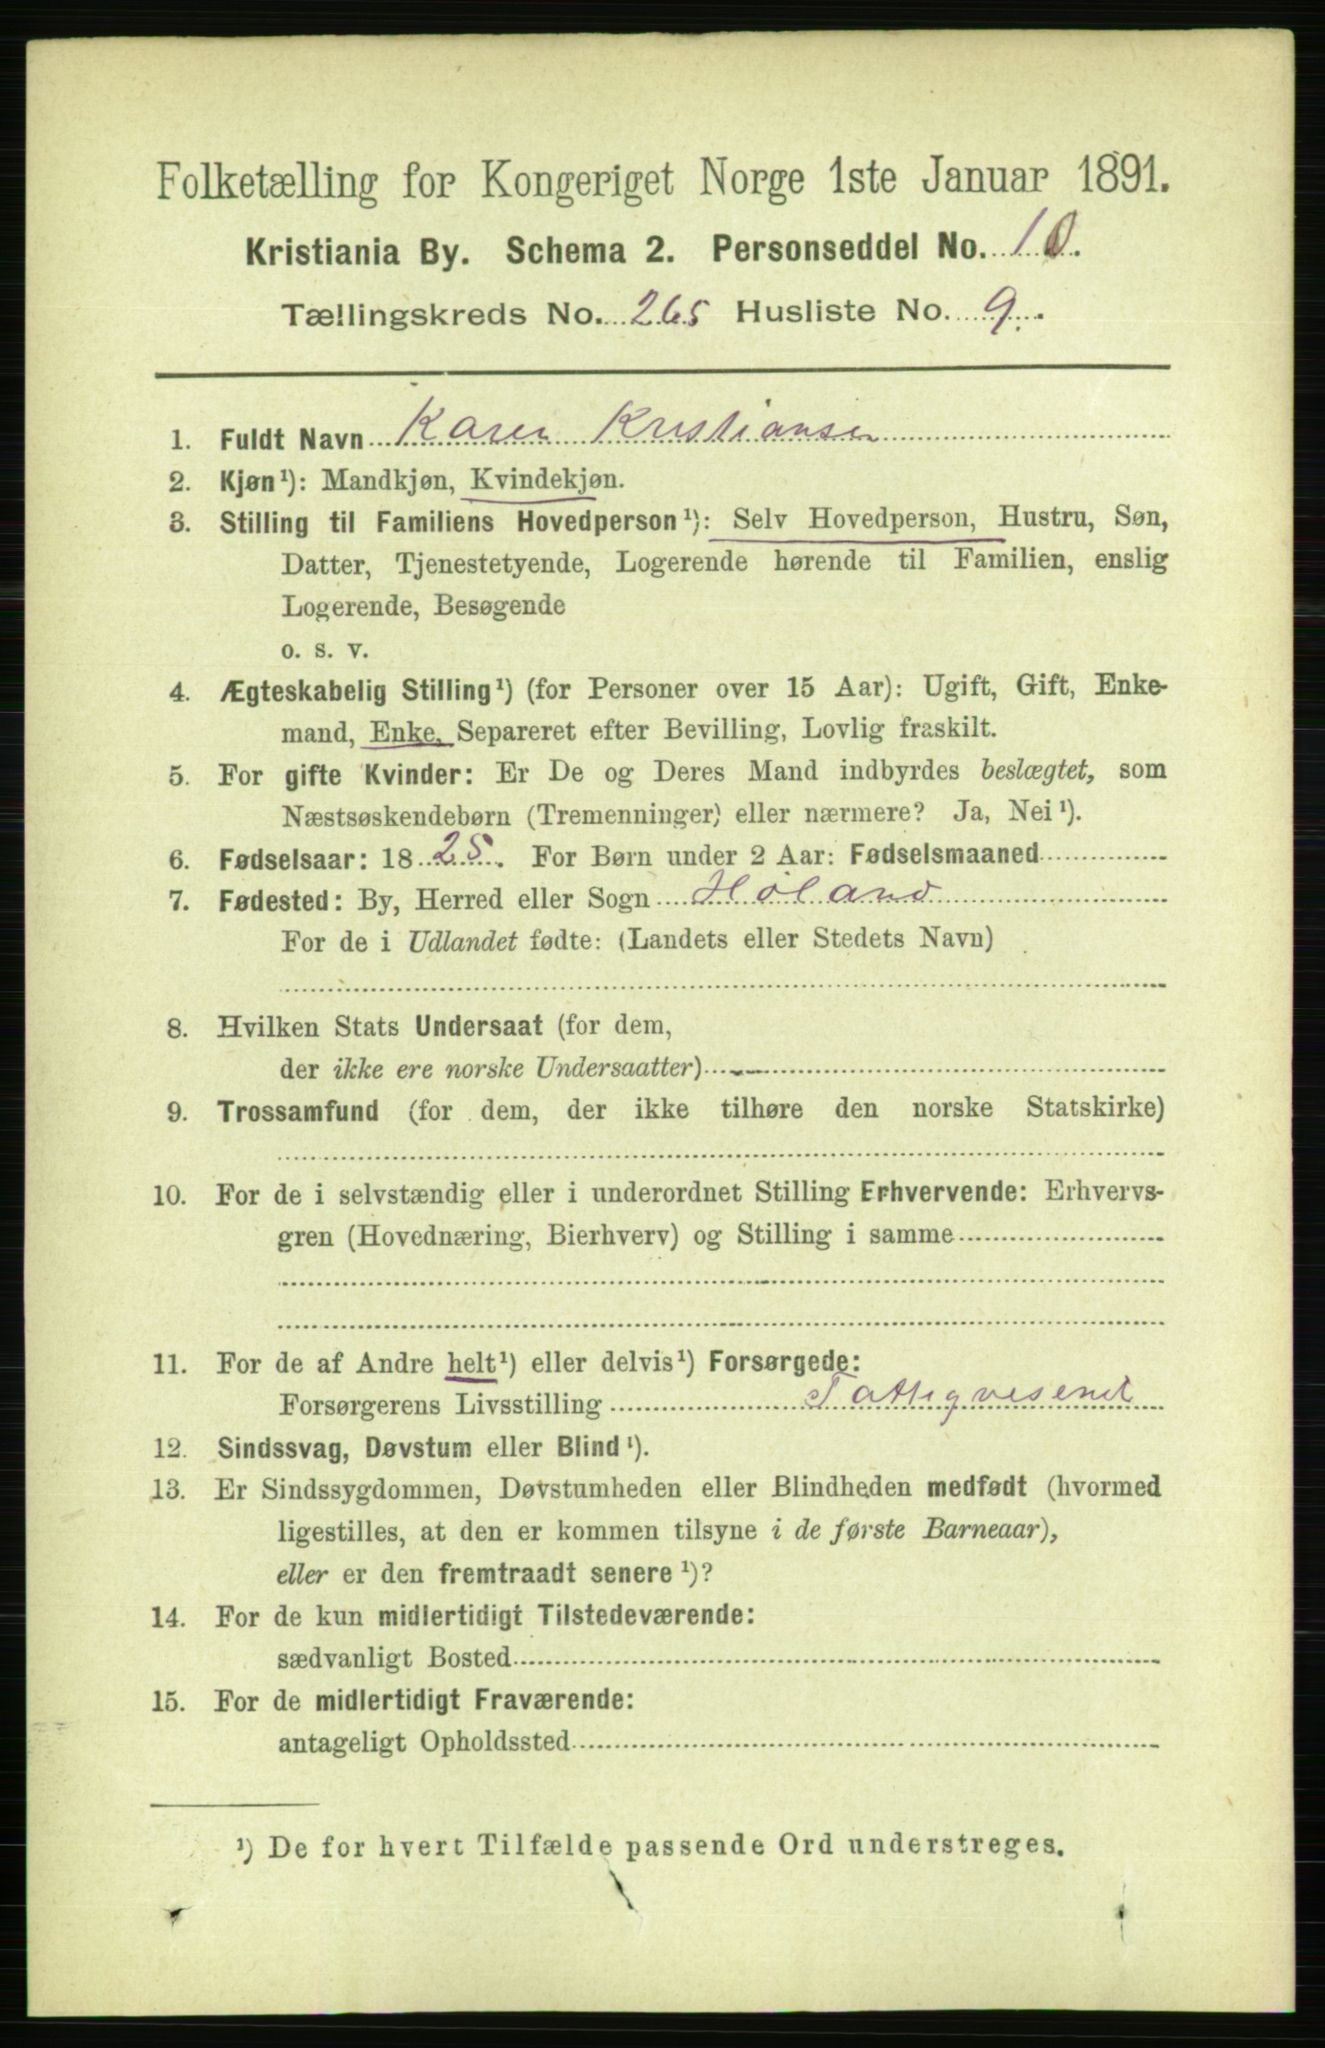 Folketælling for Kongeriget Norge 1ste Januar 1891.
Kristiania By. Schema 2. Personseddel No. 10.
Tællingskreds No. 265 Husliste No. 9.
1. Fuldt Navn Karen Kristiansen
2. Kjøn¹): Mandkjøn, Kvindekjøn.
3. Stilling til Familiens Hovedperson¹): Selv Hovedperson, Hustru, Søn,
Datter, Tjenestetyende, Logerende hørende til Familien, enslig
Logerende, Besøgende
o. s. v.
4. Ægteskabelig Stilling¹) (for Personer over 15 Aar): Ugift, Gift, Enke-
mand, Enke, Separeret efter Bevilling, Lovlig fraskilt.
5. For gifte Kvinder: Er De og Deres Mand indbyrdes beslægtet, som
Næstsøskendebørn (Tremenninger) eller nærmere? Ja, Nei¹).
6. Fødselsaar: 1825. For Børn under 2 Aar: Fødselsmaaned
7. Fødested: By, Herred eller Sogn Høland
For de i Udlandet fødte: (Landets eller Stedets Navn)
8. Hvilken Stats Undersaat (for dem,
der ikke ere norske Undersaatter)
9. Trossamfund (for dem, der ikke tilhøre den norske Statskirke)
10. For de i selvstændig eller i underordnet Stilling Erhvervende: Erhvervs-
gren (Hovednæring, Bierhverv) og Stilling i samme
11. For de af Andre helt¹) eller delvis¹) Forsørgede:
Forsørgerens Livsstilling Fattigvesenet
12. Sindssvag, Døvstum eller Blind¹).
13. Er Sindssygdommen, Døvstumheden eller Blindheden medfødt (hvormed
ligestilles, at den er kommen tilsyne i de første Barneaar),
eller er den fremtraadt senere¹)?
14. For de kun midlertidigt Tilstedeværende:
sædvanligt Bosted
15. For de midlertidigt Fraværende:
antageligt Opholdssted
¹) De for hvert Tilfælde passende Ord understreges.